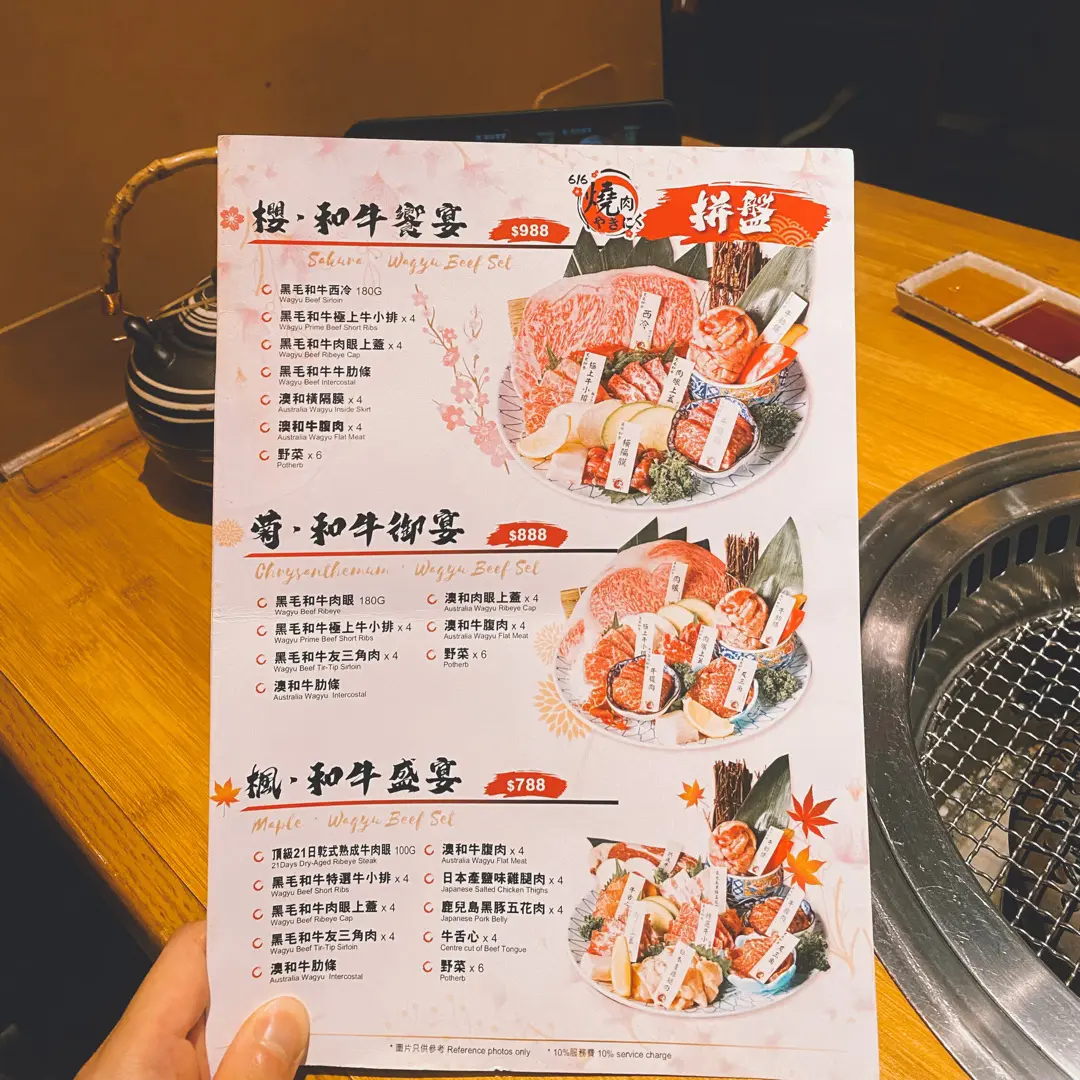 櫻・和牛饗宴
$988
616
燒肉
やきにく
拼盤
Sakura · Wagyu Beef Set
黑毛和牛西冷 180G
Wagyu Beef Sirloin
黑毛和牛極上牛小排 x 4
Wagyu Prime Beef Short Ribs
黑毛和牛肉眼上蓋 x 4
Wagyu Beef Ribeye Cap
黑毛和牛牛肋條
Wagyu Beef Intercostal
澳和橫隔膜 x 4
Australia Wagyu Inside Skirt
澳和牛腹肉 x 4
Australia Wagyu Flat Meat
野菜 x 6
Potherb
西冷
極上牛小排
肉眼上蓋
橫隔膜
菊・和牛御宴
$888
Chrysanthemum · Wagyu Beef Set
黑毛和牛肉眼 180G
Wagyu Beef Ribeye
黑毛和牛極上牛小排 x 4
Wagyu Prime Beef Short Ribs
黑毛和牛友三角肉 x 4
Wagyu Beef Tir-Tip Sirloin
澳和牛肋條
Australia Wagyu Intercostal
澳和肉眼上蓋 x 4
Australia Wagyu Ribeye Cap
澳和牛腹肉 x 4
Australia Wagyu Flat Meat
野菜 x 6
Potherb
肉眼
牛腹肉
楓・和牛盛宴
$788
Maple · Wagyu Beef Set
頂級21日乾式熟成牛肉眼 100G
21Days Dry-Aged Ribeye Steak
黑毛和牛特選牛小排 x 4
Wagyu Beef Short Ribs
黑毛和牛肉眼上蓋 x 4
Wagyu Beef Ribeye Cap
黑毛和牛友三角肉 x 4
Wagyu Beef Tir-Tip Sirloin
澳和牛肋條
Australia Wagyu Intercostal
澳和牛腹肉 x 4
Australia Wagyu Flat Meat
日本產鹽味雞腿肉 x 4
Japanese Salted Chicken Thighs
鹿兒島黑豚五花肉 x 4
Japanese Pork Belly
牛舌心 x 4
Centre cut of Beef Tongue
野菜 x 6
Potherb
* 圖片只供參考 Reference photos only * 10%服務費 10% service charge